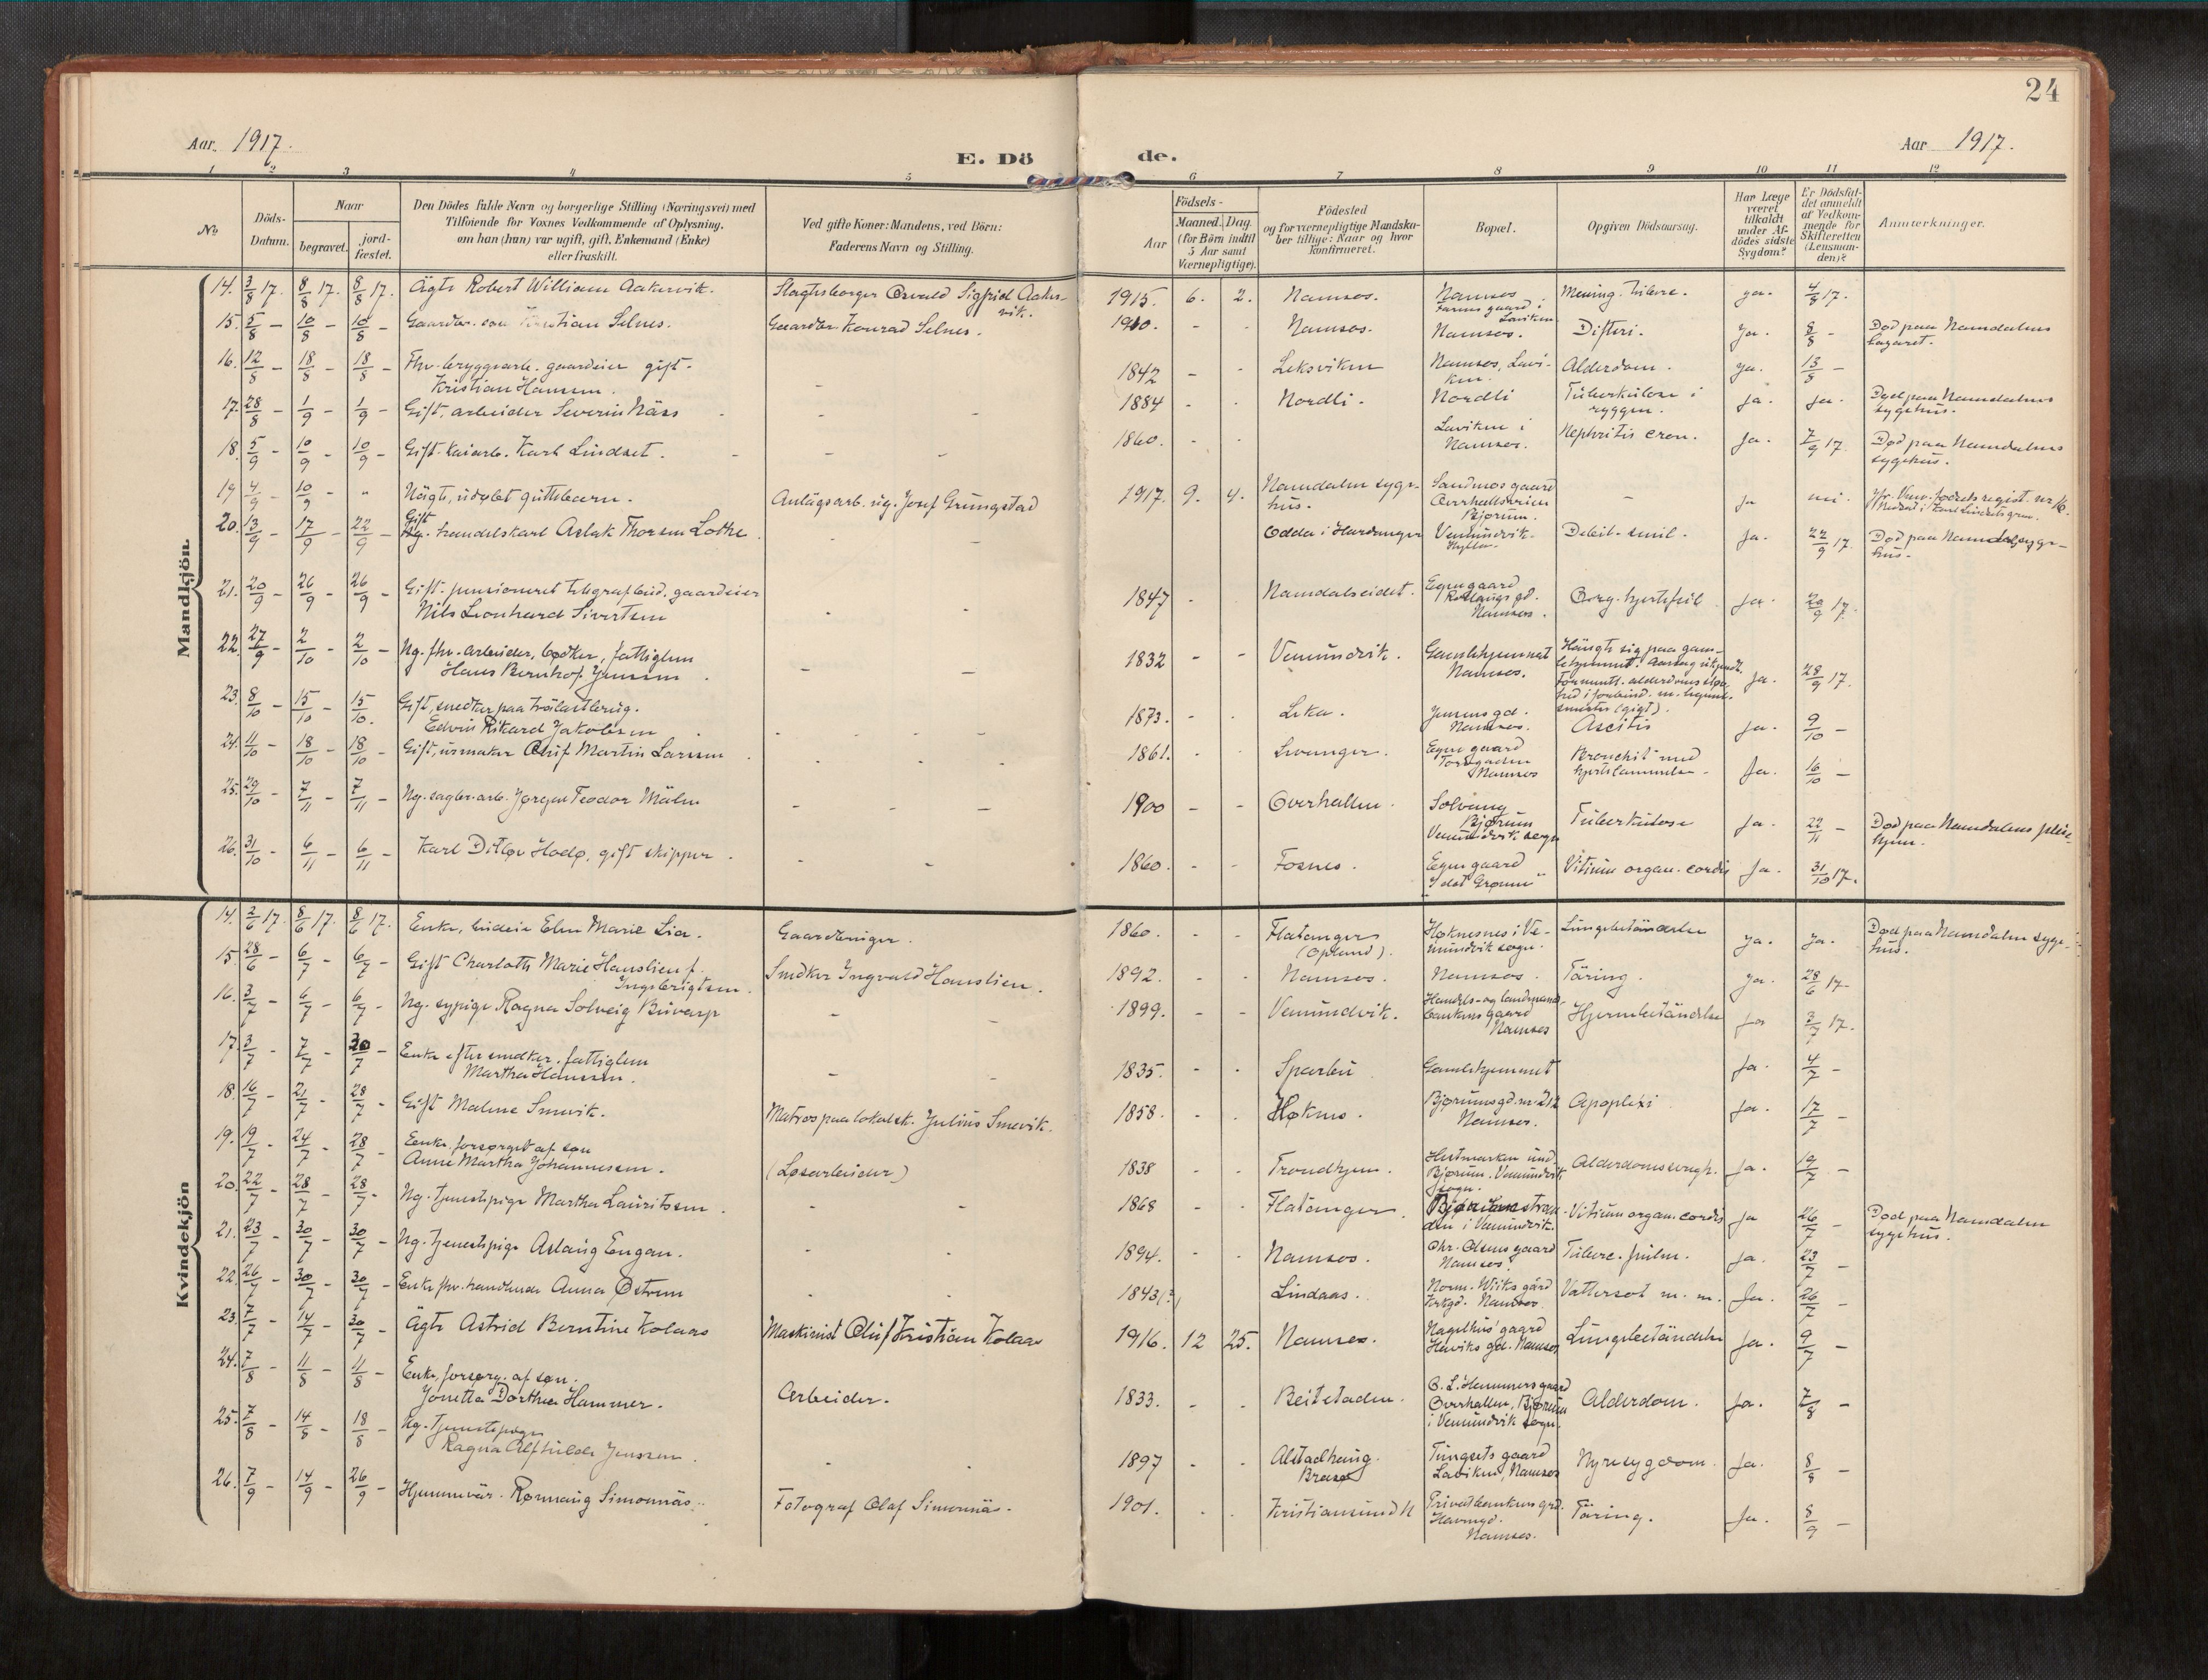 24
Aar. 1917.
E. Dö de.
Aar 1917.
1 2 3 4 5 6 7 8 9 10 11 12
No
Döds-Datum.
Naar
begravet. jord-fæstet.
Den Dödes fulde Navn og borgerlige Stilling (Næringsvei) med
Tilföiende for Voxnes Vedkommende af Oplysning,
om han (hun) var ugift, gift, Enkemand (Enke)
eller fraskilt.
Ved gifte Koner: Mandens, ved Börn:
Faderens Navn og Stilling.
Födsels-
Aar
Maaned. Dag.
(for Börn indtil
5 Aar samt
Værnepligtige).
Födested
og for værnepligtige Mandska-
ber tillige: Naar og hvor
konfirmeret.
Bopæl.
Opgiven Dödsaarsag.
Har Læge
været
tilkaldt
under Af-
dödes sidste
Sygdom?
Er Dödsfal-
det anmeldt
af Vedkom-
mende for
Skifteretten
(Lensman-
den)?
Anmærkninger.
Mandkjön.
14. 3/8 17. 8/8 17. 8/8 17. Ägte Robert William Aakervik. Slagtesborger Osvald Sigfrid Aaker-vik. 1915. 6. 2. Namsos. Namsos Mening. tuberc. ja. 4/8 17.
15. 5/8 – 10/8 – 10/8 – Gaardbr. søn Kristian Selnes. Gaardbr. Konrad Selnes. 1910. - - Namsos. Laviken Namsos. Difteri. Ja. 8/8 – Død paa Namdalens lazaret.
16. 12/8 – 18/8 – 18/8 – Fhv. bryggearb. gaardeier gift.
Kristian Hansen. 1842 - - Leksviken Namsos, Lavi-ken. Alderdom. ja. 13/8 –
17. 28/8 – 1/9 – 1/9 – Gift. arbeider Severin Näss 1884 - - Nordli. Nordli Tuberkulose i ryggen. ja. ja. Død paa Namdalens sygehus.
18. 5/9 – 10/9 – 10/9 – Gift. kaiarb. Karl Lindset. 1860. - - Laviken i Namsos. Nephritis cron. Ja. 7/9 17. Død paa Namdalens sygehus.
19 4/9 – 10/9 – " Uägte, udøbt guttebarn. Anlägsarb. ug. Josef Grungstad 1917. 9. 4. Namdalen syge-hus. Sandmosgaard Overhallsveien Bjørum. – Ja nei.
20. 13/9 – 17/9 – 22/9 – Gift handelskarl Aslak Thorsen Lothe Odda i Hardanger Vemundvik. Debil. senil. Ja. 22/9 17. Død paa Namdal. syge-hus.
21. 20/9 – 26/9 – 26/9 – Gift. pensioneret telegrafbud. gaardeier
Nils Leonhard Sivertsen 1847 - Namdalseidet. Egen gaard Namsos. Org. hjertefeil Ja. 29/9 17.
22. 27/9 – 2/10 – 2/10 – Ug. fhv. arbeider, bødker, fattiglem
Hans Bernhof Jensen. 1832 - - Vemundvik. Gamlehjemmet Namsos. Hängte sig paa gam-lehjemmet. Ja. 28/9 17.
23. 8/10 – 15/10 – 15/10. Gift, snedker paa träilastbrug.
Edvin Rikard Jakobsen 1873. - - Leka. Jensens gd. Namsos. Ascitis Ja. 9/10 –
24. 11/10 – 18/10 – 18/10 – Gift, urmaker Oluf Martin Larsen 1861. - - Levanger. Egen gaard Namsos Bronchit med hjertelammelse. Ja. 16/10 –
25. 29/10 – 7/11 – 7/11 – Ug. sagbr. arb. Jørgen Teodor Mälen 1900 - - Overhallen. Solvang Bjørum Vemundvik sogn Tuberkulose Ja. 22/11 – Død paa Namdalens pleie-hjem.
26. 31/10 – 6/11 – 6/11 – Karl Ditløv Hodø, gift skipper. 1860. - - Fosnes. Egen gaard "I det Grønne" Vitium organ. cordis Ja. 31/10 17.
Kvindekjön
14. 2/6 17. 8/6 17. 8/6 17. Enke, Elen Marie Lia. Gaardbruger. 1860. - - Flatanger Høknesnes i Ve-mundvik sogn. Lungebetändelse ja. ja. Død paa Namdalen syge-hus.
15. 28/6 – 6/7 – 6/7 – Gift Charlotte Marie Hanslien f.
Ingebrigtsen. Snedker Ingvald Hanslien. 1892. - - Namsos. Namsos. Täring. ja. 28/6 17.
16. 3/7 – 6/7 – 6/7 – Ug. sypige Ragna Solveig Buvarp 1899. - - Vemundvik. Handels- og landmands-bankens gaard Namsos Hjernebetändelse ja 3/7 17.
17. 3/7 – 7/7 – 30/7 – Enke efter snedker, fattiglem
Martha Hansen. 1835. - - Sparbu Gamlehjemmet Ja. 4/7 –
18. 16/7 – 21/7 – 28/7 – Gift Malene Smevik. Matros paa lokalsk. Julius Smevik. 1858. - - Høknes. Bjørumsgd. Namsos. Apoplexi Ja. 17/7 –
19. 19/7 – 24/7 – 28/7 – Enke, forsørget af søn
Anne Martha Johannessen. (Løsarbeider) 1838 - - Trondhjem. Bjørum. Vemundvik sogn. Alderdomssvagh. Ja. 19/7 –
20. 22/7 – 28/7 – 28/7 – Ug. tjenestepige Martha Lauritsen. 1868 - - Flatanger. Bjørumstran-den i Vemundvik. Vitium organ. cordis Ja 26/7 – Død paa Namdalen sygehus.
21. 23/7 – 30/7 – 30/7 – Ug. tjenestepige Aslaug Engan. 1894. - - Namsos. Chr. Olsens gaard Namsos. Tuberc. pulm. Ja. 23/7 –
22. 26/7 – 30/7 – 30/7 – Enke fhv. handlende Anna Østrem 1843(?) Lindaas. Norm. Wiiks gård Namsos. Vattersot m. m. Ja. 26/7 –
23. 7/7 – 14/7 – 30/7 – Ägte Astrid Berntine Kolaas Maskinist Oluf Kristian Kolaas 1916. 12 25. Namsos. Namsos Lungebetändelse Ja. 9/7 –
24. 7/8 – 11/8 – 11/8 – Enke, forsørg. af søn.
Jonetta Dorthea Hammer. Arbeider. 1833. - - Beitstaden. Hammers gaard Overhallsv. Bjørum i Vemundvik sogn. Alderdom. Ja. 7/8 –
25. 7/8 – 14/8 – 18/8 – Ug. tjenestepige
Ragna Alfhilde Jenssen. 1897 - - Alstadhaug. Tungsets gaard Laviken, Namsos Nyresygdom. Ja. 8/8 –
26. 7/9 – 14/9 – 26/9 – Hjemmevär. Rønnaug Simonnäs. Fotograf Olaf Simonnäs. 1901. - - Kristiansund N Privatbankens grd. Havnegd. Namsos. Täring. Ja. 8/9 –